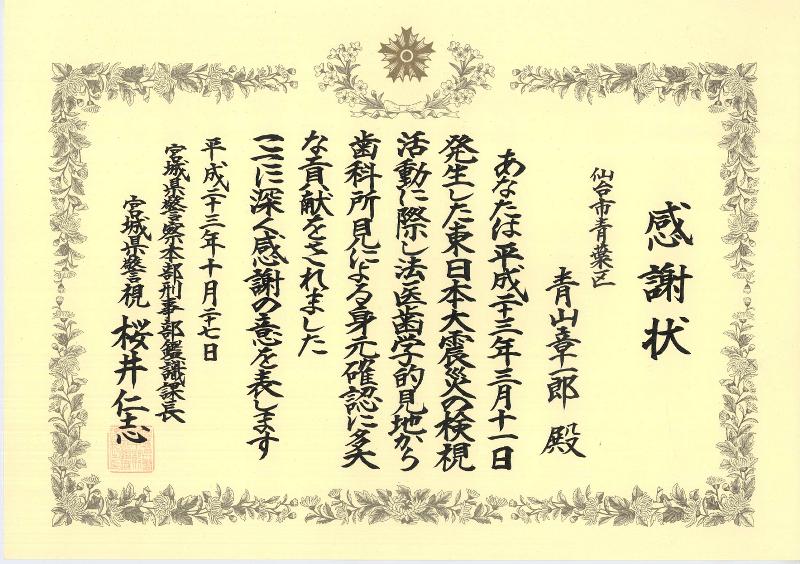 感謝状
仙台市青葉区
青山章一郎 殿
あなたは平成二十三年三月十一日
発生した東日本大震災の検視
活動に際し法医歯学的見地から
歯科所見による身元確認に多大
な貢献をされました
ここに深く感謝の意を表します
平成二十三年十月二十七日
宮城県警察本部刑事部鑑識課長
宮城県警視 桜井仁志